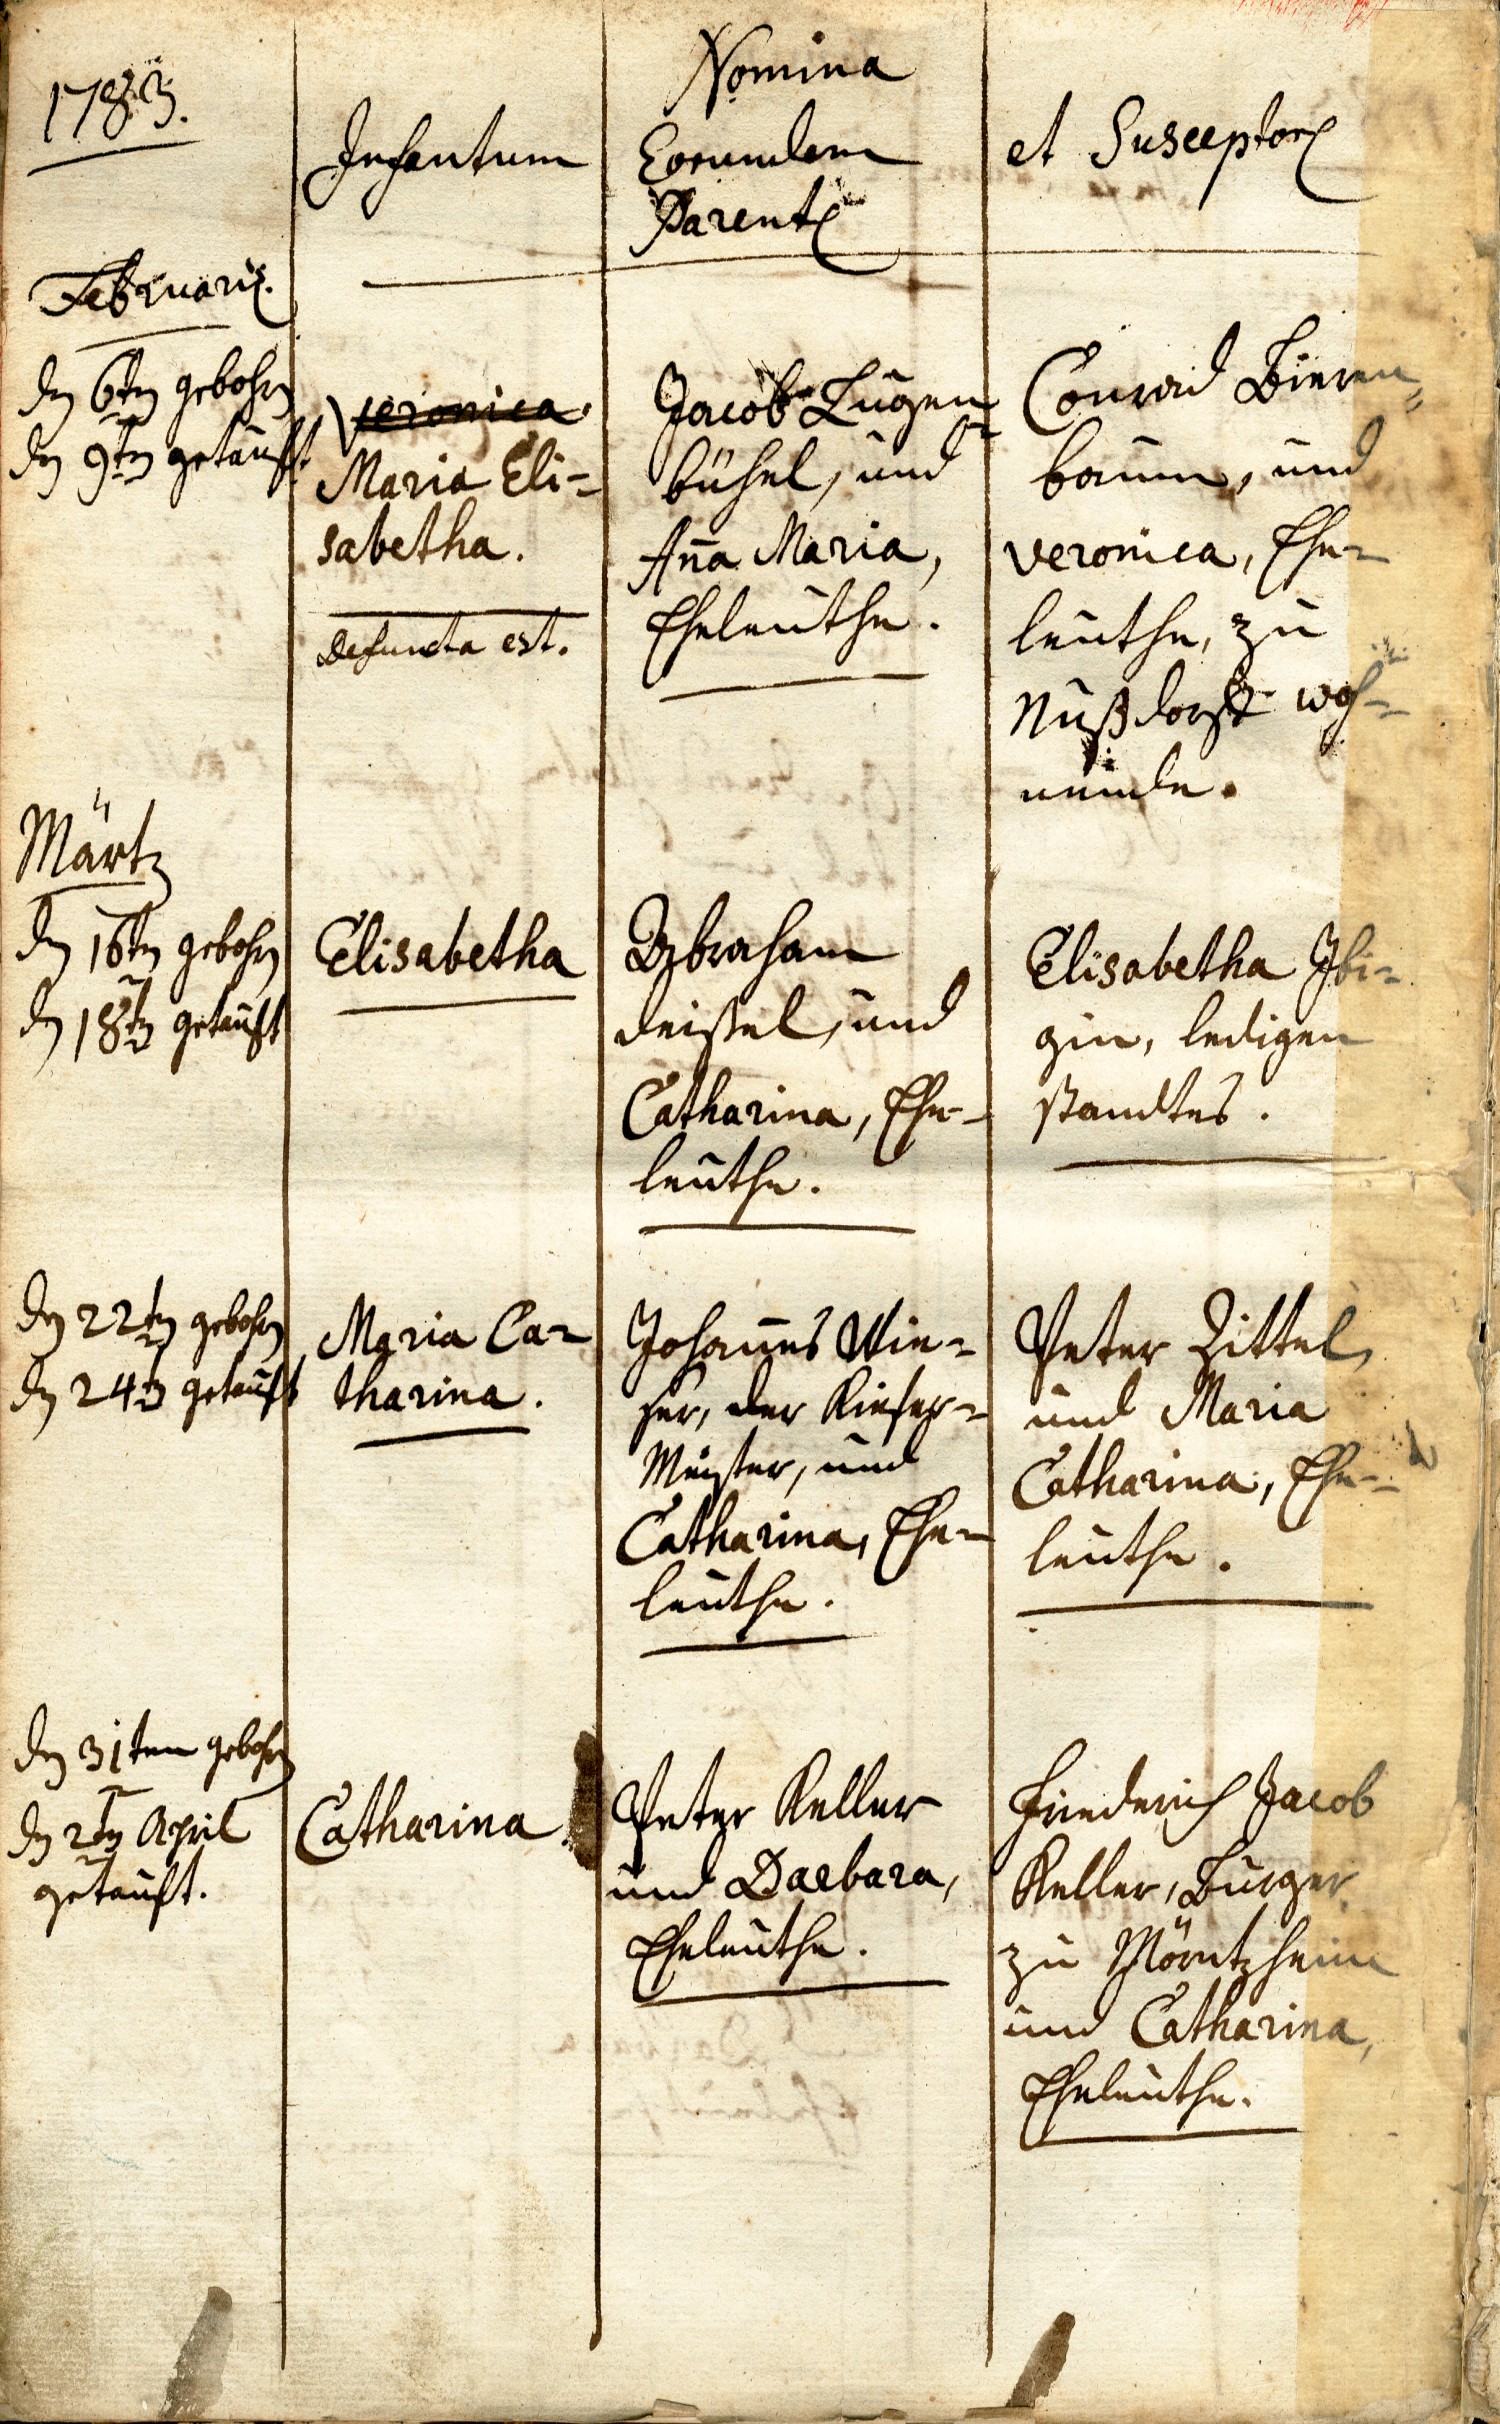 1783.
Nomina
Infantum
Eorundem
Parent
et Susceptor
Februarii.
den 6ten gebohrn
den 9ten getaufft.
Veronica
Maria Eli-
sabetha.
defuncta est.
Jacob Lugen-
bühel, und
Anna Maria,
Eheleuthe.
Conrad Bieren-
baum, und
Veronica, Ehe-
leuthe, zu
Nußdorff woh-
nende.
Märtz
den 16ten gebohrn
den 18ten getauft
Elisabetha
Abraham
Deißel, und
Catharina, Ehe-
leuthe.
Elisabetha
gin, ledigen
standtes.
den 22ten gebohrn
den 24ten getauft
Maria Ca-
tharina.
Johannes Wie-
ser, der Kiefer-
Meister, und
Catharina, Ehe-
leuthe.
Peter Zittel,
und Maria
Catharina, Ehe-
leuthe.
den 31ten gebohrn
den 2ten April
getauft.
Catharina.
Peter Keller
und Barbara,
Eheleuthe.
Friederich Jacob
Keller, Burger
zu Mörtzheim
und Catharina,
Eheleuthe.